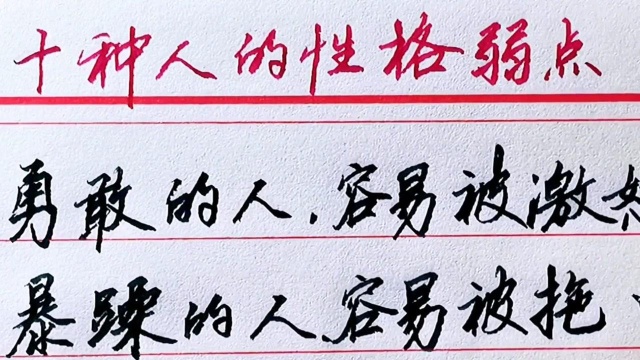 十种人的性格弱点
勇敢的人.容易被激怒
暴躁的人容易被拖